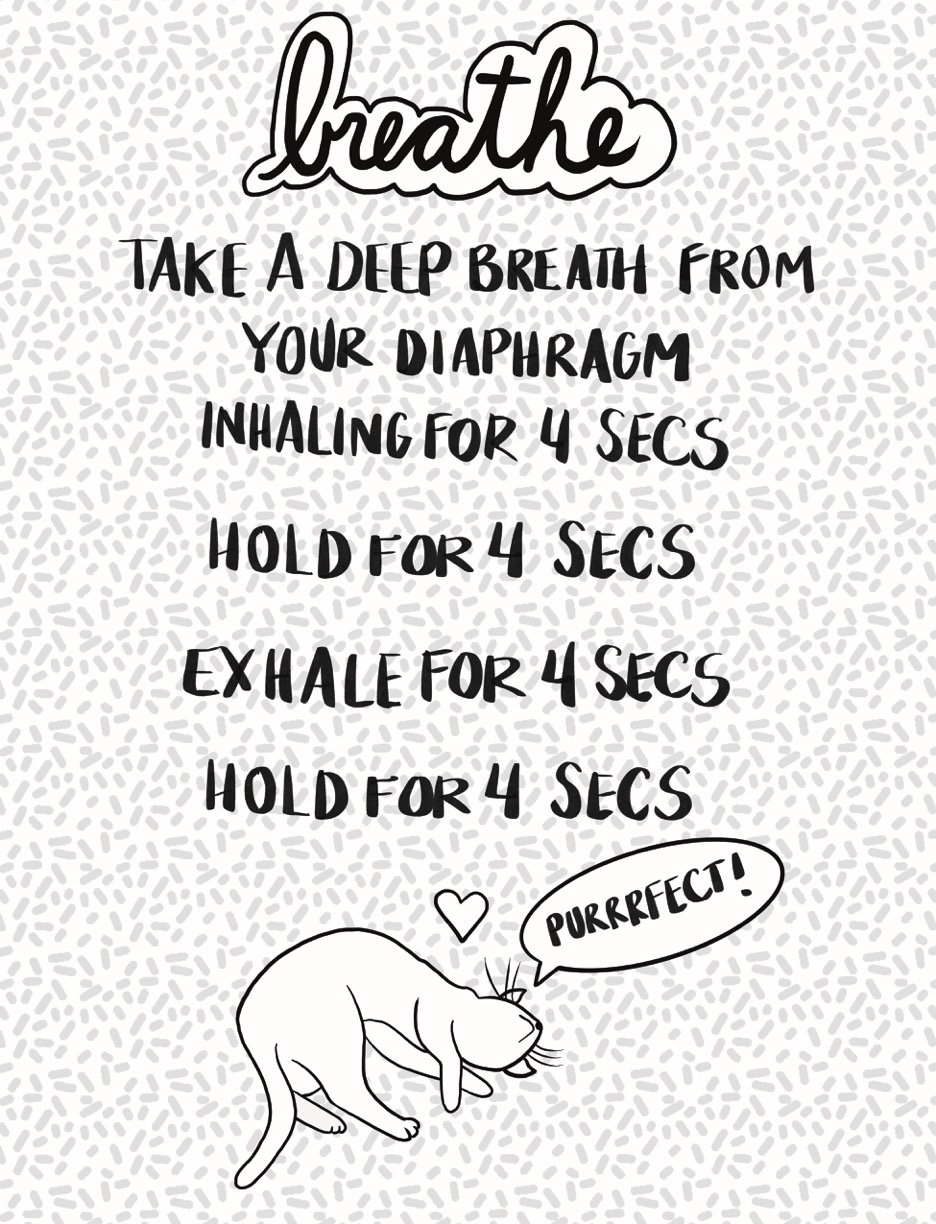 breathe
TAKE A DEEP BREATH FROM
YOUR DIAPHRAGM
INHALING FOR 4 SECS
HOLD FOR 4 SECS
EXHALE FOR 4 SECS
HOLD FOR 4 SECS
PURRRFECT!